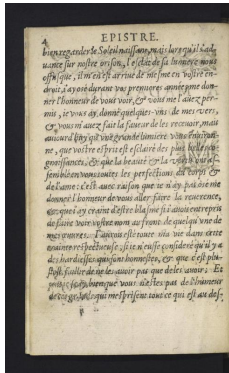 4 EPISTRE.
bien regarder le Soleil naissant, mais lors qu'il s'ad-
uance sur nostre orison, l'esclat de sa lumiere nous
offusque, il m'en est arriué de mesme en vostre en-
droit, i'ay osé durant vos premieres années me don-
ner l'honneur de vous voir, & vous me l'auez per-
mis, ie vous ay donné quelques-vns de mes vers,
& vous m'auez fait la faueur de les receuoir, mais
auiourd'huy qu'vne grande lumiere vous enuiron-
ne, que vostre esprit est esclairé des plus belles co-
gnoissances, & que la beauté & la
semblent en vous toutes les perfections du corps &
de l'ame: c'est auec raison que ie n'ay pas osé me
donner l'honneur de vous aller faire la reuerence,
& que i'ay craint d'estre blasmé si i'auois entrepris
de faire voir vostre nom au front de quelqu'vne de
mes œuures. I'aurois esté toute ma vie dans cette
crainte respectueuse, si ie n'eusse consideré qu'il y a
des hardiesses qui sont honnestes, & que c'est plu-
stost faillir de ne les auoir pas que de les auoir; Et
bien que vous n'estes pas de l'humeur
de ces qui mesprisent tout ce qui est au des-